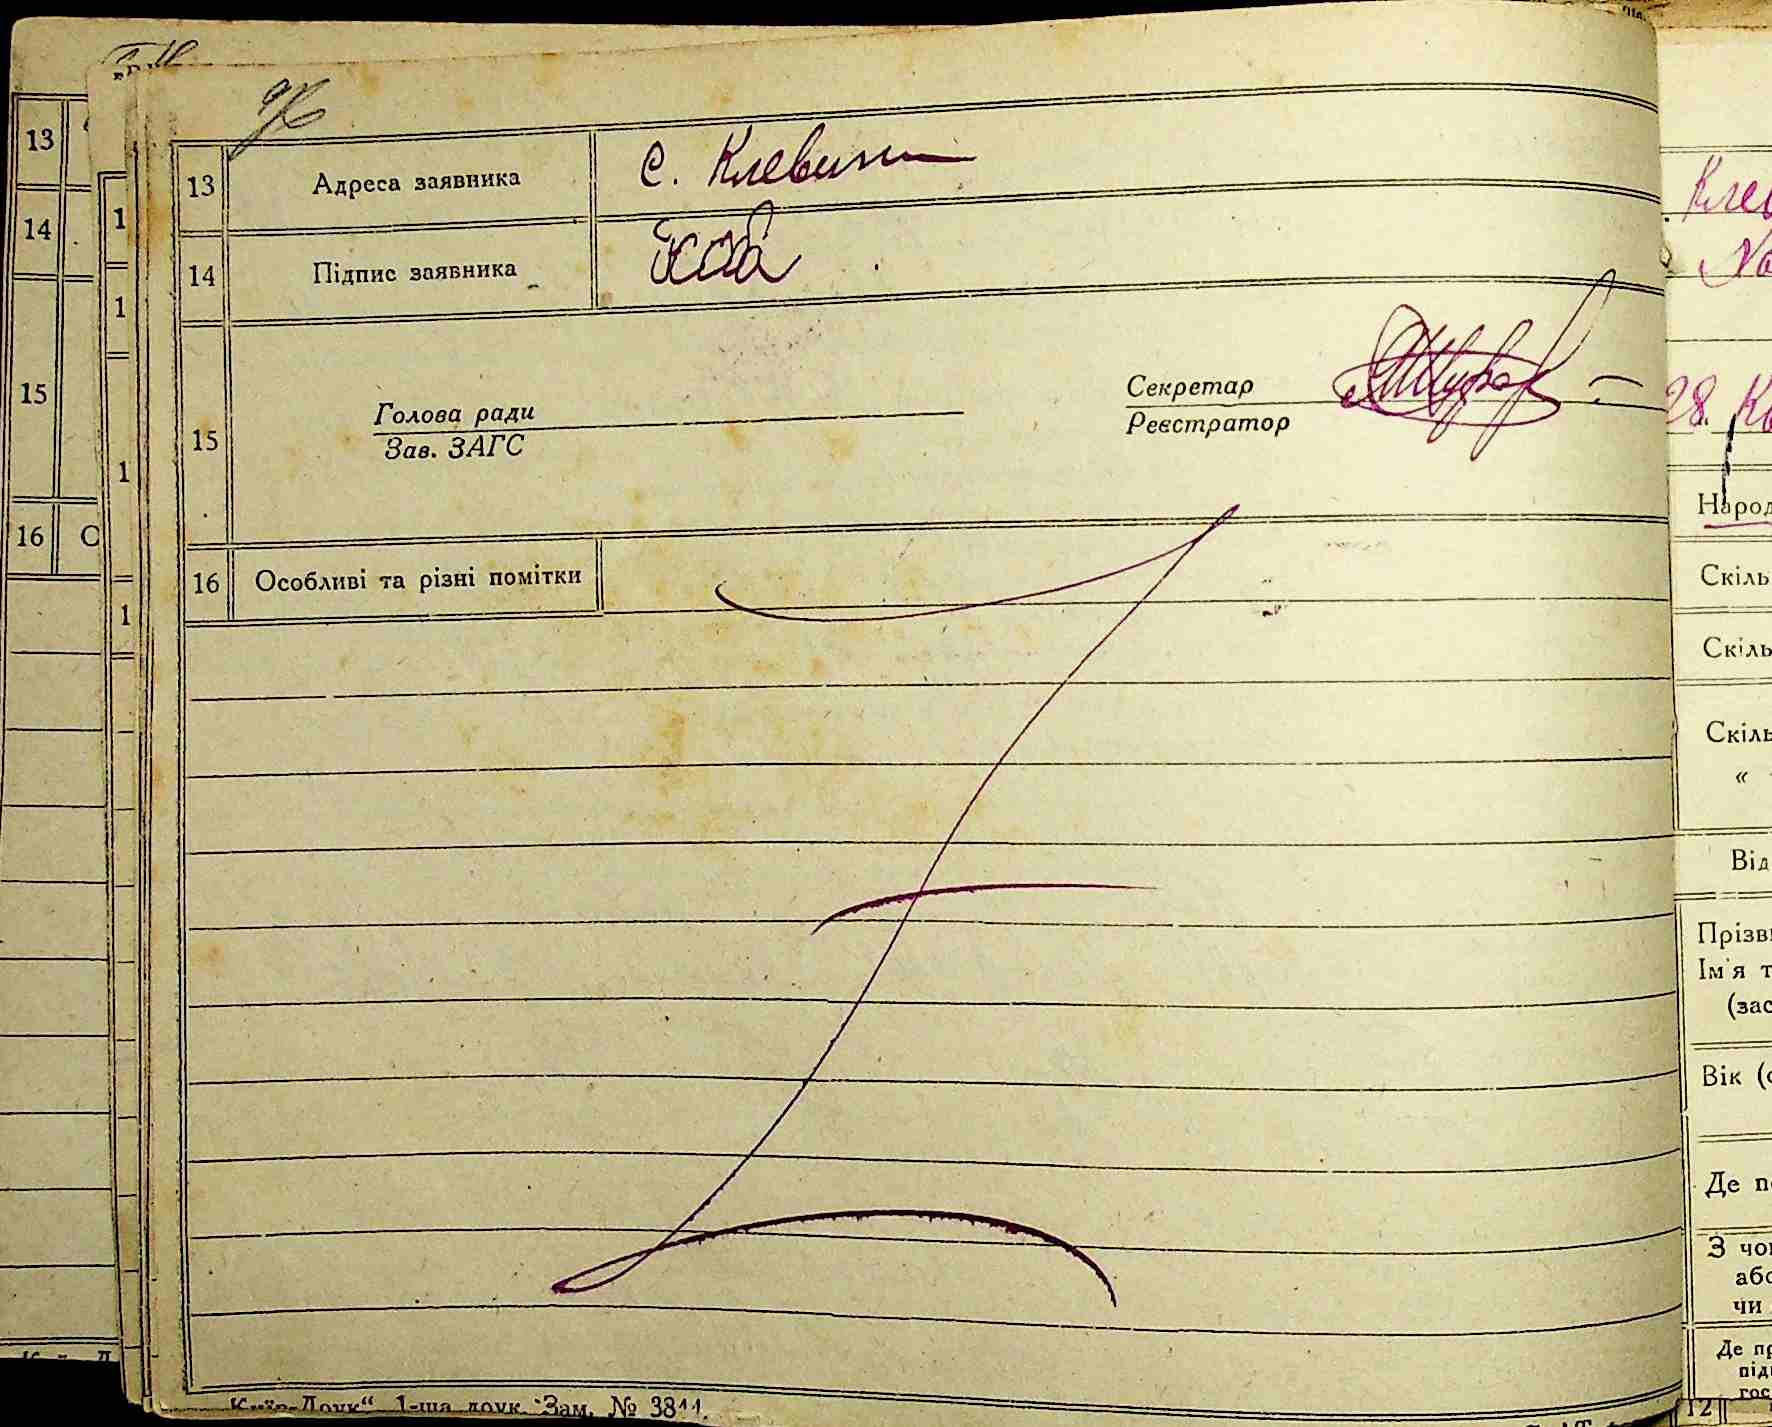 13 Адреса заявника с. Клевин
14 Підпис заявника Коб
15
Голова ради
Зав. ЗАГС
Секретар
Реєстратор
16 Особливі та різні помітки
Київ-Друк" 1-ша друк. Зам. № 3811.
13
14
15
16 О
1
1
1
1
Клев
28. Кв
Народ
Скіль
Скіль
Скіль
«
Від
Прізв
Ім'я т
(зас
Вік (
Де п
З чо
або
чи
Де пр
під
гос
12